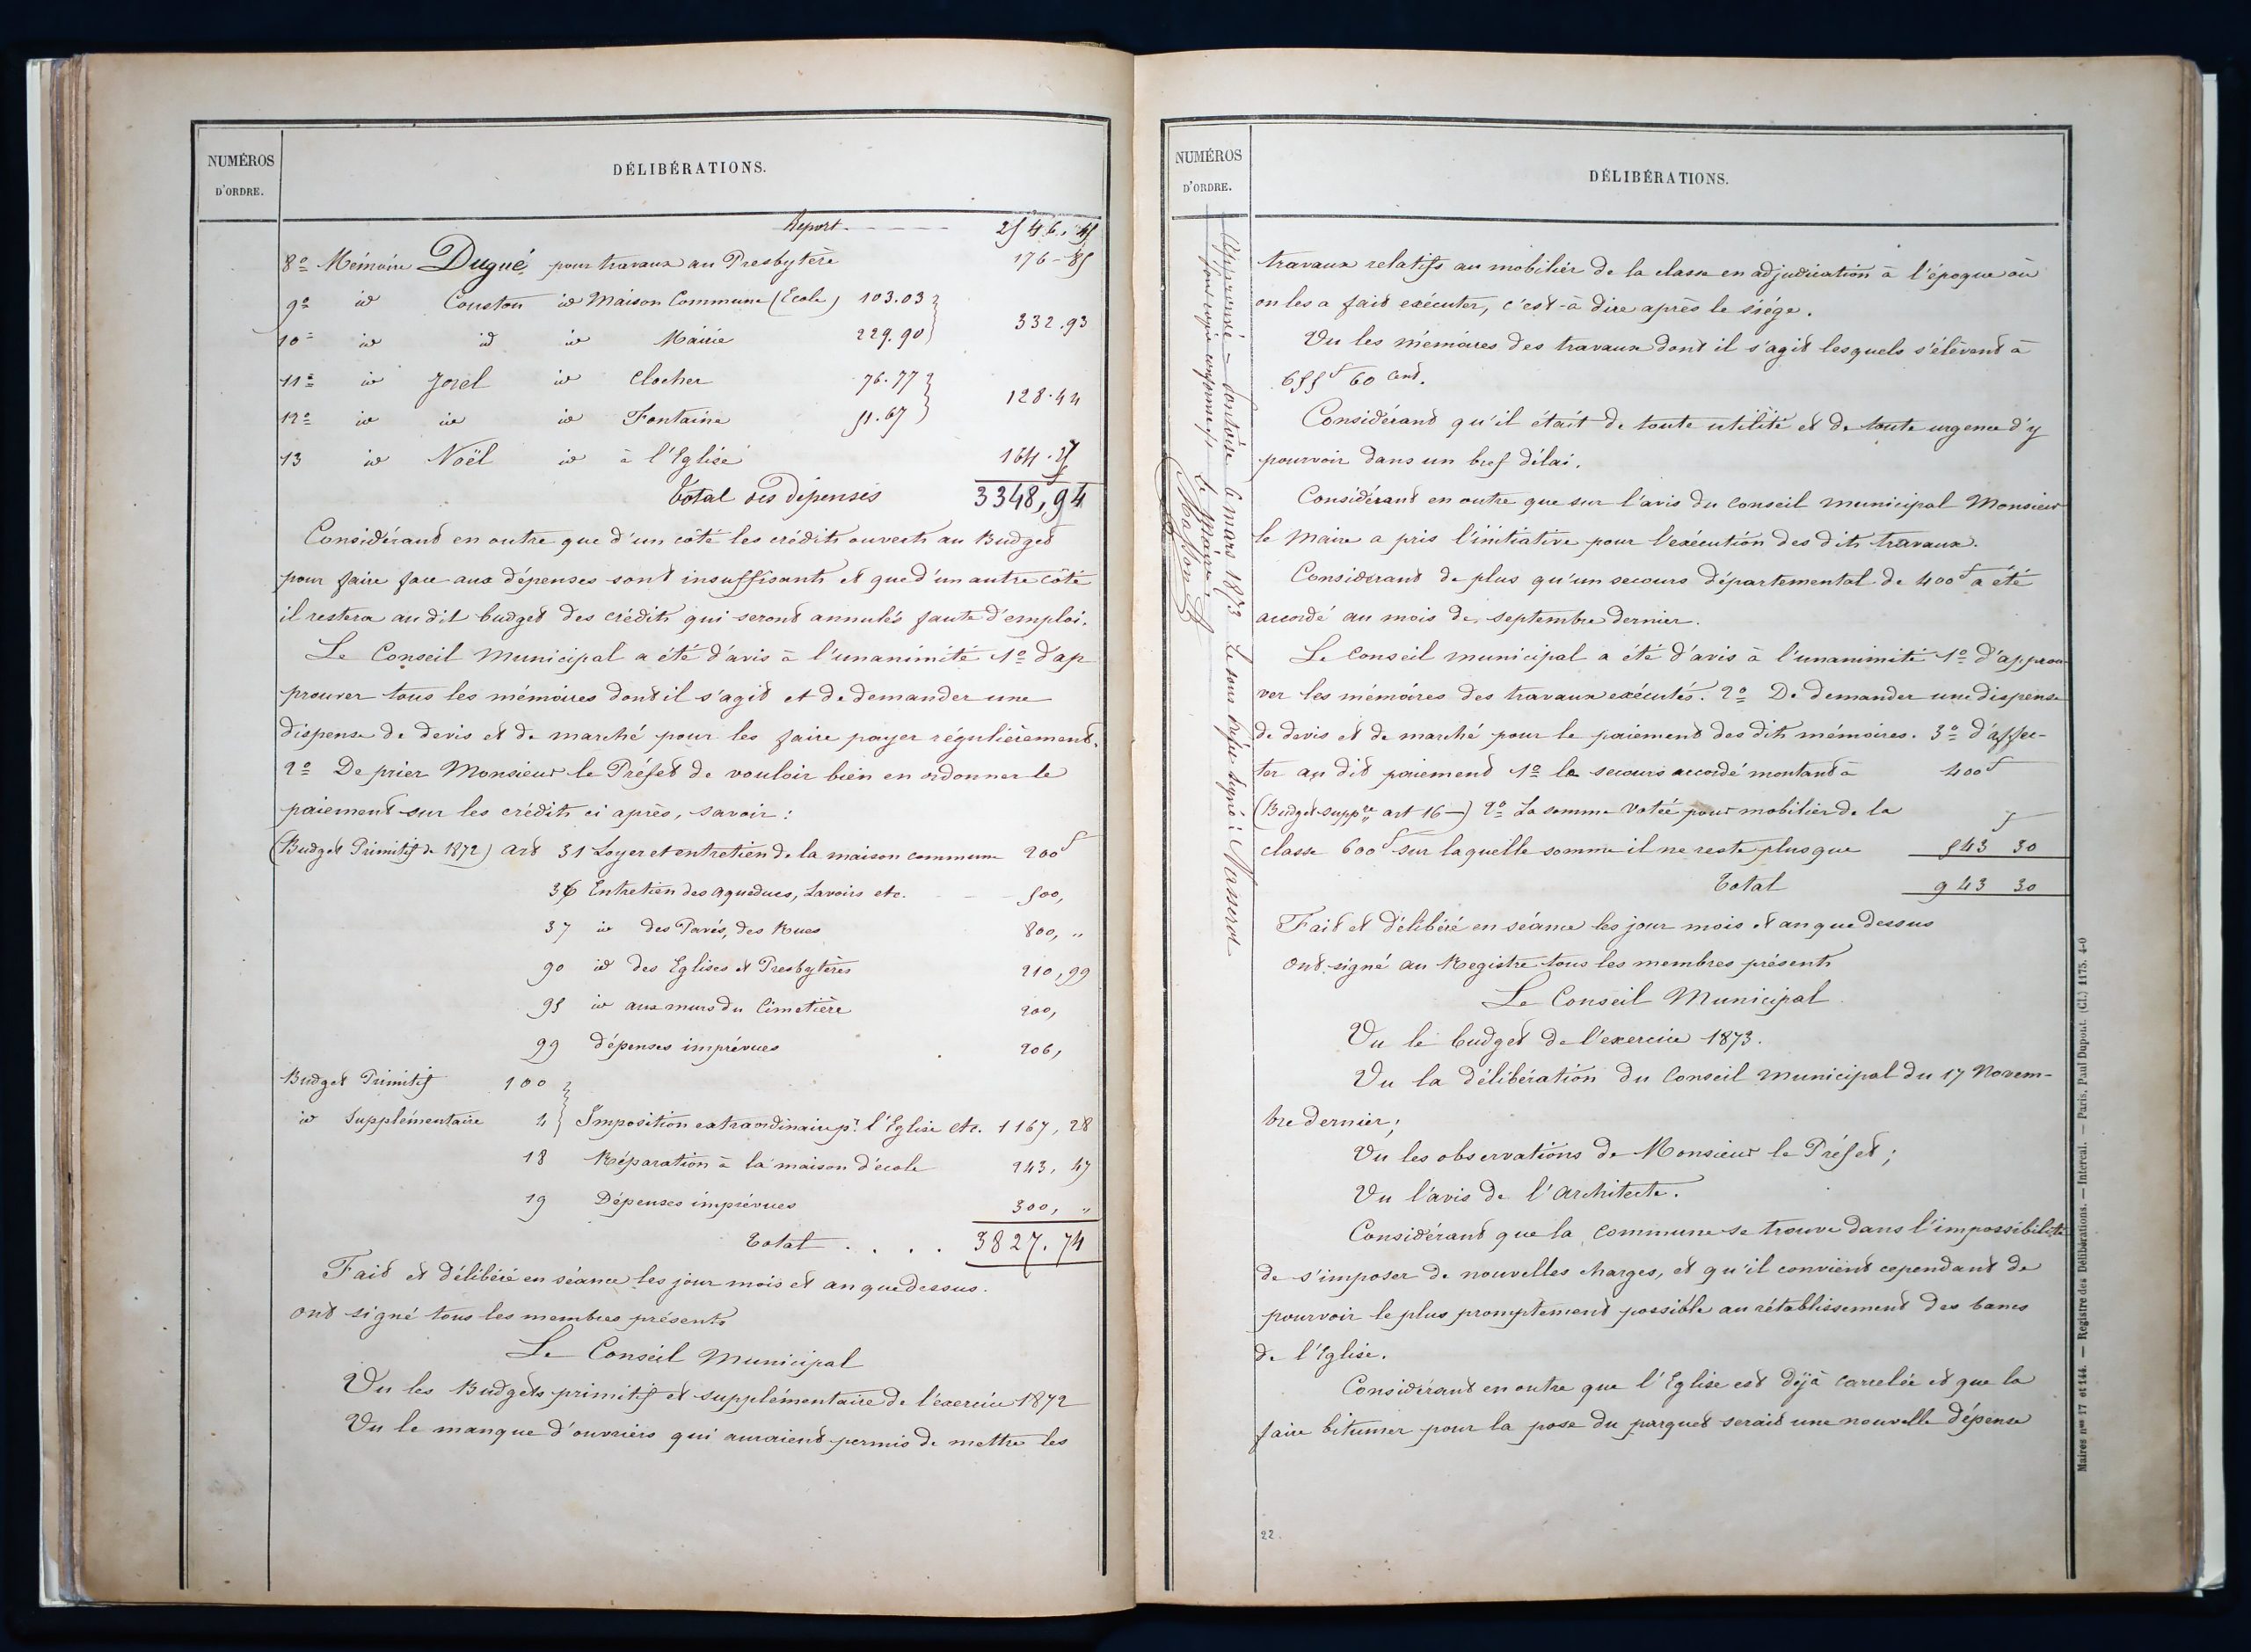 NUMÉROS
D'ORDRE.
DÉLIBÉRATIONS.
Report 2546.45
8º Mémoire Dugué, pour travaux au Presbytère 176-85
9º id Couston id Maison Commune (Ecole) 103.03
332.93
10º id id id Mairie 229.90
11º id Jozel id Clocher 76.77
128.44
12º id id id Fontaine 51.67
13 id Noël id à l'Eglise 164.27
Total des dépenses 3348,94
Considérant en outre que d'un côté les crédits ouverts au Budget
pour faire face aux dépenses sont insuffisants et que d'un autre côté
il restera au dit budget des crédits qui seront annulés faute d'emploi.
Le Conseil Municipal a été d'avis à l'unanimité 1º d'ap
prouver tous les mémoires dont il s'agit et de demander une
dispense de devis et de marché pour les faire payer régulièrement.
2º De prier Monsieur le Préfet de vouloir bien en ordonner le
paiement sur les crédits ci après, savoir :
(Budget Primitif de 1872) Art 31 Loyer et entretien de la maison commune 200f
36 Entretien des aqueducs, Lavoirs etc. 500,
37 id des Pavés, des Rues 800, "
90 id des Eglises et Presbytères 210,99
95 id aux murs du Cimetière 200,
99 dépenses imprévues 206,
Budget Primitif 100
id Supplémentaire 4 Imposition extraordinaire pr l'Eglise etc. 1167,28
18 Réparation à la maison d'école 243,47
19 Dépenses imprévues 300, "
Total . . . . 3827.74
Fait et délibéré en séance les jour mois et an que dessus.
ont signé tous les membres présents
Le Conseil Municipal
Vu les Budgets primitif et supplémentaire de l'exercice 1872
Vu le manque d'ouvriers qui auraient permis de mettre les
NUMÉROS
D'ORDRE.
DÉLIBÉRATIONS.
Approuvé – Pontoise 6 mars 1873 Le sous Préfet signé :
Pour copie conforme Le Maire
Masson
travaux relatifs au mobilier de la classe en adjudication à l'époque où
on les a fait exécuter, c'est-à dire après le siége.
Vu les mémoires des travaux dont il s'agit lesquels s'élèvent à
655f 60 cent.
Considérant qu'il était de toute utilité et de toute urgence d'y
pourvoir dans un bref délai.
Considérant en outre que sur l'avis du Conseil Municipal Monsieur
le Maire a pris l'initiative pour l'exécution des dits travaux.
Considérant de plus qu'un secours départemental de 400f a été
accordé au mois de septembre dernier.
Le Conseil municipal a été d'avis à l'unanimité 1º d'approu-
ver les mémoires des travaux exécutés. 2º De demander une dispense
de devis et de marché pour le paiement des dits mémoires. 3º d'affec-
ter au dit paiement 1º le secours accordé montant à 400f
(Budget suppre art 16 –) 2º La somme votée pour mobilier de la
classe 600f sur laquelle somme il ne reste plus que 543 30
Total 943 30
Fait et délibéré en séance les jour mois et an que dessus
ont signé au Registre tous les membres présents
Le Conseil Municipal
Vu le budget de l'exercice 1873.
Vu la délibération du Conseil Municipal du 17 Novem-
bre dernier ;
Vu les observations de Monsieur le Préfet ;
Vu l'avis de l'architecte.
Considérant que la commune se trouve dans l'impossibilité
de s'imposer de nouvelles charges, et qu'il convient cependant de
pourvoir le plus promptement possible au rétablissement des bancs
de l'Eglise.
Considérant en outre que l'Eglise est déjà carrelée et que la
faire bitumer pour la pose du parquet serait une nouvelle dépense
22.
Maires nos 17 et 144. — Registre des Délibérations. — Intercal. — Paris, Paul Dupont. (Cl.) 1175. 4-0